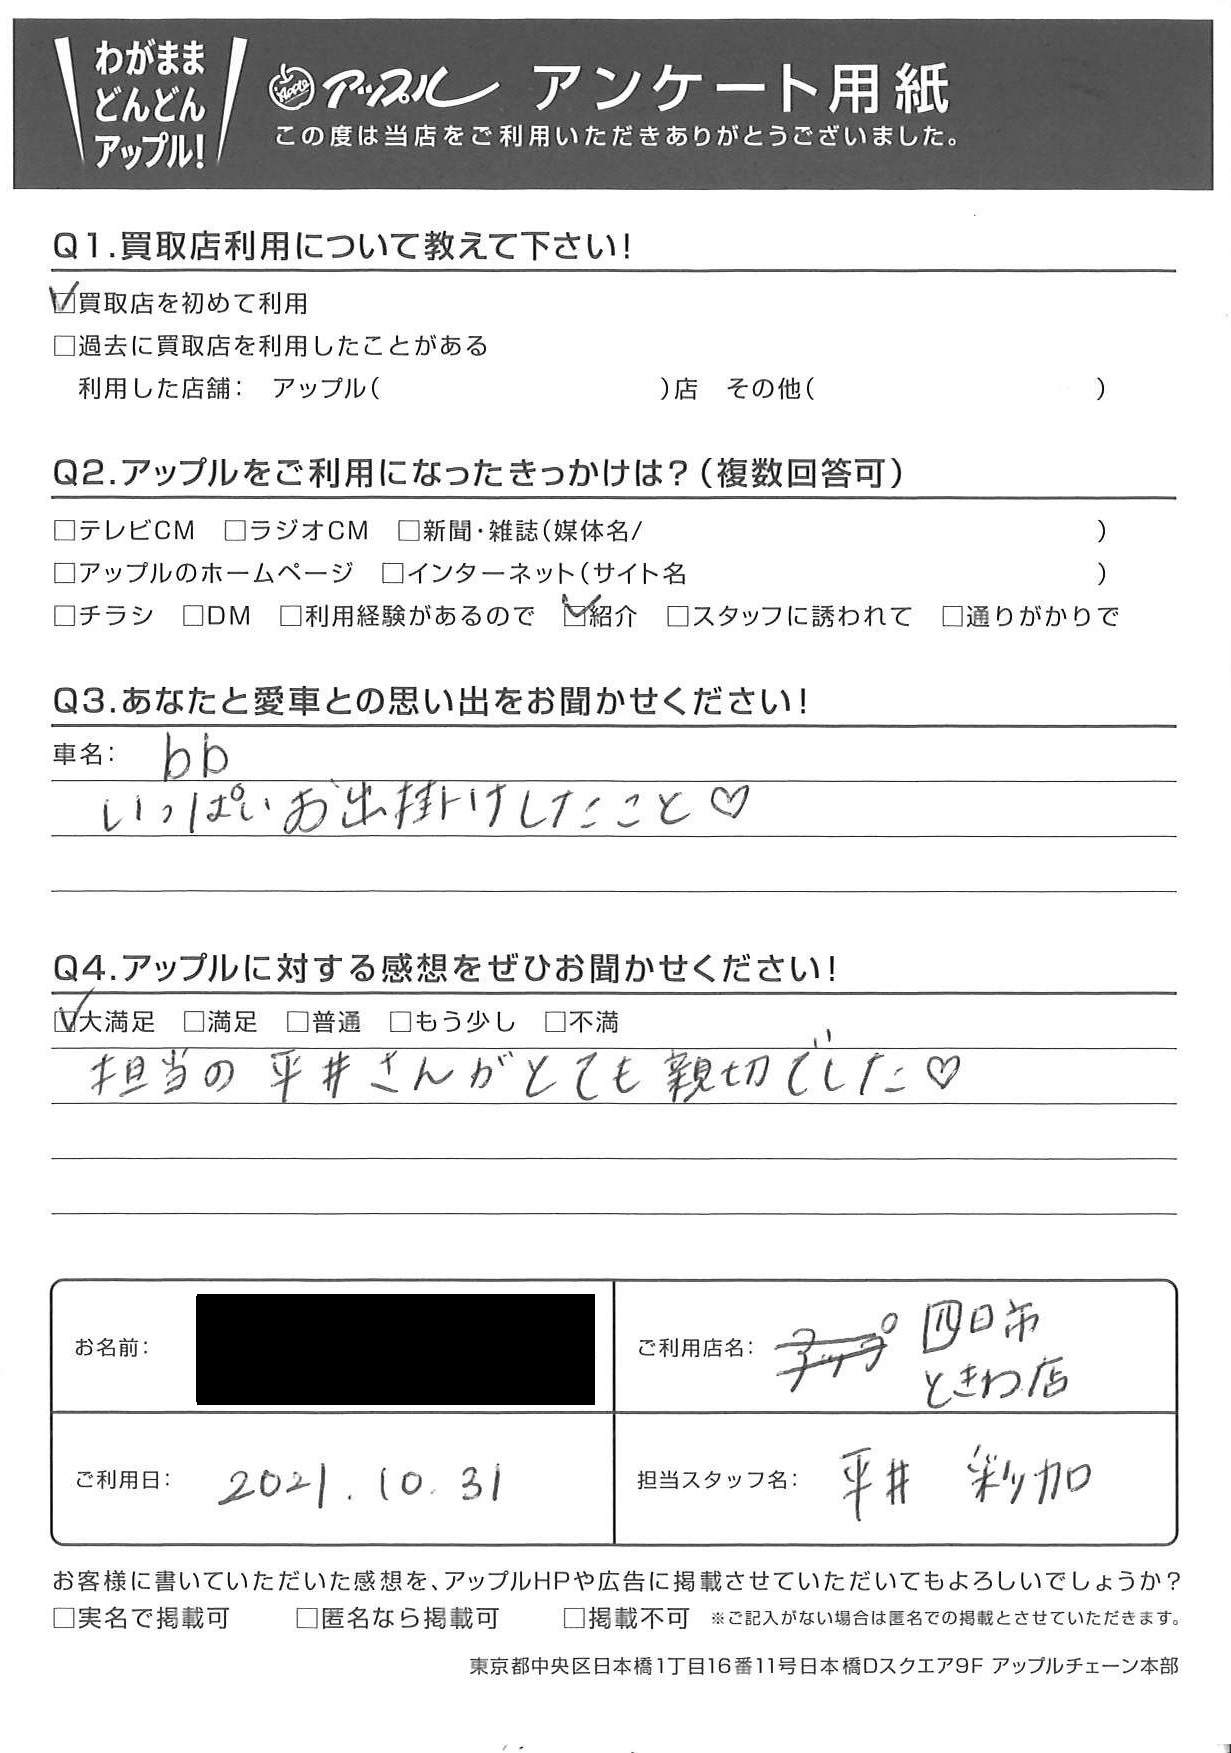 わがまま
どんどん
アップル!
Apple アップル アンケート用紙
この度は当店をご利用いただきありがとうございました。
Q1.買取店利用について教えて下さい!
☑買取店を初めて利用
□過去に買取店を利用したことがある
利用した店舗: アップル( )店 その他( )
Q2.アップルをご利用になったきっかけは?(複数回答可)
□テレビCM □ラジオCM □新聞・雑誌(媒体名/ )
□アップルのホームページ □インターネット(サイト名 )
□チラシ □DM □利用経験があるので ☑紹介 □スタッフに誘われて □通りがかりで
Q3.あなたと愛車との思い出をお聞かせください!
車名: bb
いっぱいお出掛けしたこと♡
Q4.アップルに対する感想をぜひお聞かせください!
☑大満足 □満足 □普通 □もう少し □不満
担当の平井さんがとても親切でした♡
お名前:
ご利用店名: 四日市
ときわ店
ご利用日: 2021.10.31
担当スタッフ名: 平井 彩加
お客様に書いていただいた感想を、アップルHPや広告に掲載させていただいてもよろしいでしょうか?
□実名で掲載可 □匿名なら掲載可 □掲載不可 ※ご記入がない場合は匿名での掲載とさせていただきます。
東京都中央区日本橋1丁目16番11号日本橋Dスクエア9F アップルチェーン本部